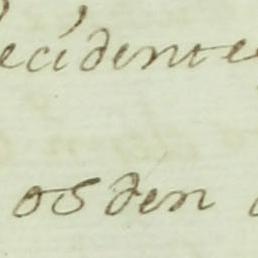 ecidente
os den